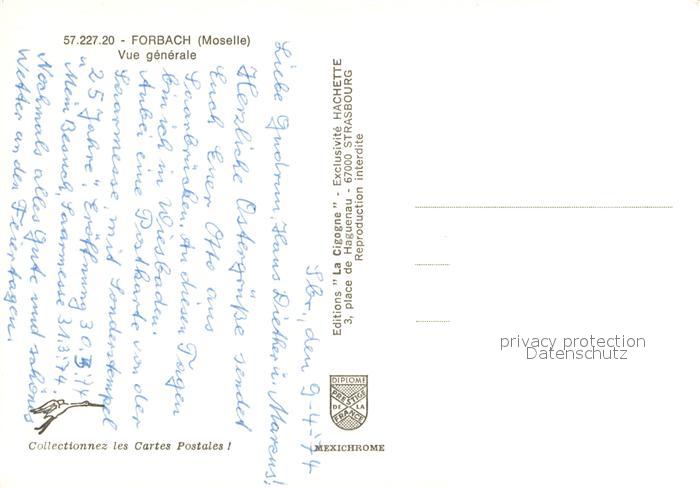 57.227.20 - FORBACH (Moselle)
Vue générale
Sbr., den 9-4-'74
Liebe Gudrun, Hans Diether u. Marcus!
Herzliche Ostergrüße sendet
Euch Euer Otto aus
Saarbrücken. An diesen Tagen
bin ich in Wiesbaden.
Anbei eine Postkarte von der
Saarmesse, mit Sonderstempel
"25 Jahre", Eröffnung 30. III. 74
Mein Besuch, Saarmesse 31.3.74.
Nochmals alles Gute und schönes
Wetter an den Feiertagen.
Editions " La Cigogne " - Exclusivité HACHETTE
3, place de Haguenau - 67000 STRASBOURG
Reproduction interdite
DIPLOME
PRESTIGE
DE LA
FRANCE
MEXICHROME
Collectionnez les Cartes Postales !
privacy protection
Datenschutz